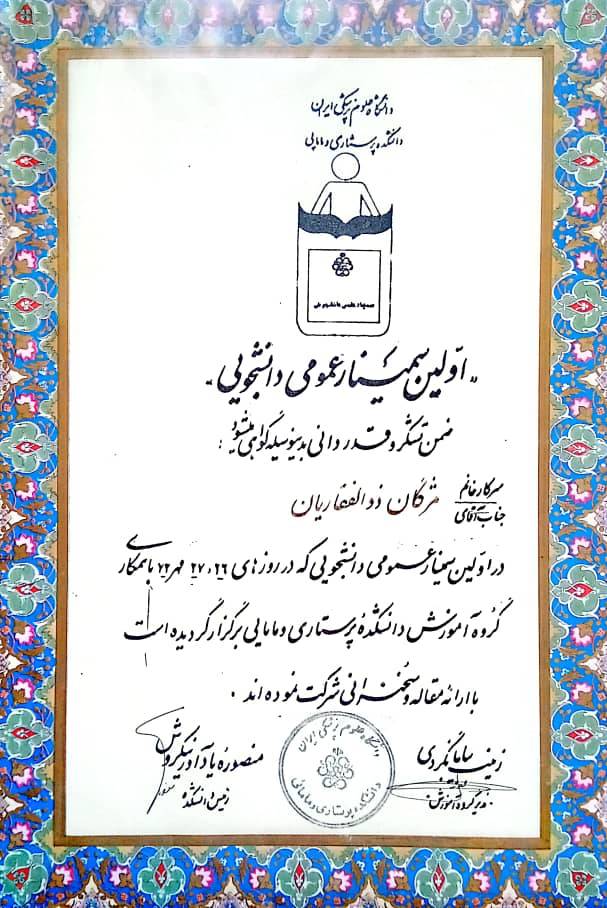 دانشگاه علوم پزشکی ایران
دانشکده پرستاری و مامایی
«اوّلین سمینار عمومی دانشجویی»
ضمن تشکر و قدردانی بدینوسیله گواهی میشود:
سرکار خانم
جناب آقای
مژگان ذوالفقاریان
در اوّلین سمینار عمومی دانشجویی که در روزهای ۲۶ و ۲۷ مهر ۷۴ با همکاری
گروه آموزش دانشکدهٔ پرستاری و مامایی برگزار گردیده است
با ارائه مقاله و سخنرانی شرکت نموده اند.
زینب سامانگردی
مدیر گروه آموزش
منصوره یادآور نیکروش
رئیس دانشکده
دانشگاه علوم پزشکی ایران
دانشکده پرستاری و مامائی